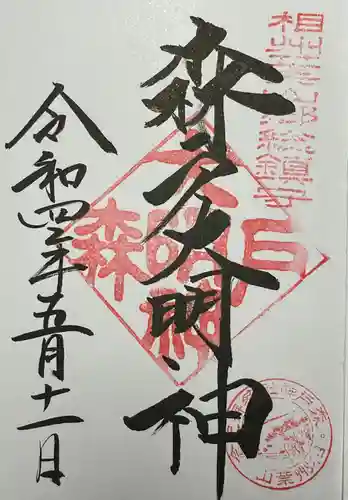 相州葉山郷総鎮守
森戸大明神
森戸大明神
令和四年五月十一日